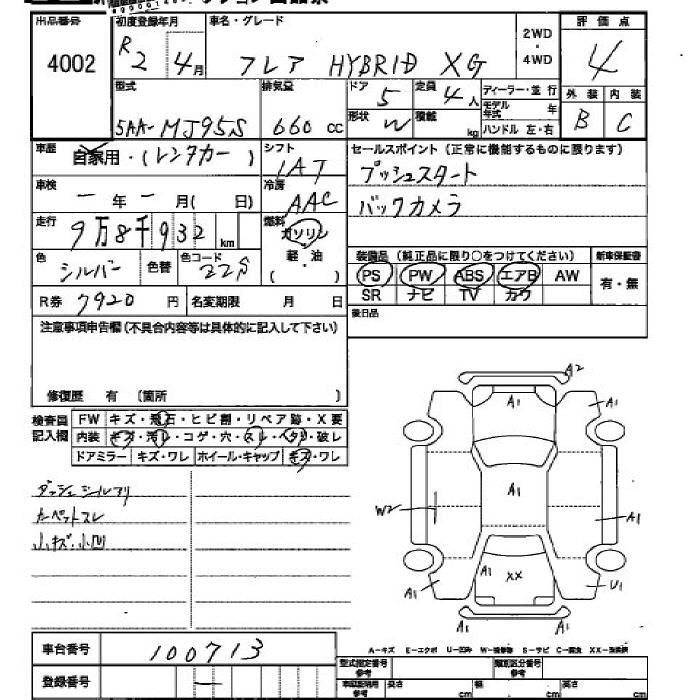 出品番号 4002
初度登録年月 R2 4月
車名・グレード フレア HYBRID XG
2WD・4WD
評価点 4
型式 5AA-MJ95S
排気量 660 cc
ドア 5
定員 4人
形状 W
積載 kg
ディーラー・並行
モデル年式 年
ハンドル 左・右
外装 B
内装 C
車歴 自家用・(レンタカー)
シフト IAT
セールスポイント(正常に機能するものに限ります)
プッシュスタート
バックカメラ
車検 一年一月(日)
冷房 AAC
走行 9万8千932 km
燃料 ガソリン 軽・油 ( )
色 シルバー 色替
色コード ZZS
装備品(純正品に限り○をつけてください)
新車保証書 有・無
PS PW ABS エアB AW
SR ナビ TV カワ
後日品
R券 7920円
名変期限 月 日
注意事項申告欄(不具合内容等は具体的に記入して下さい)
修復歴 有 〔箇所 〕
検査員記入欄
FW キズ・飛石・ヒビ割・リペア跡・X要
内装 キズ・汚レ・コゲ・穴・スレ・ヘタリ・破レ
ドアミラー キズ・ワレ ホイール・キャップ キズ・ワレ
カーペットスレ
小キズ・小凹
A2
A1 A1
A1
W2 A1
A1 XX
A1 U1
A1 A1
車台番号 100713
登録番号 一
A-キズ E-エクボ U-凹み W-補修跡 S-サビ C-腐食 XX-交換済
型式指定番号 類別区分番号
長さ cm 幅 cm 高さ cm